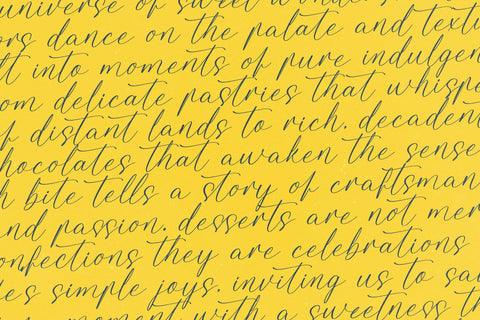 universe of sweet wonders
ors dance on the palate and textu
lt into moments of pure indulgen
om delicate pastries that whispe
f distant lands to rich. decadent
hocolates that awaken the sense
h bite tells a story of craftsman
nd passion. desserts are not mer
onfections they are celebrations
e's simple joys. inviting us to sa
moment with a sweetness th